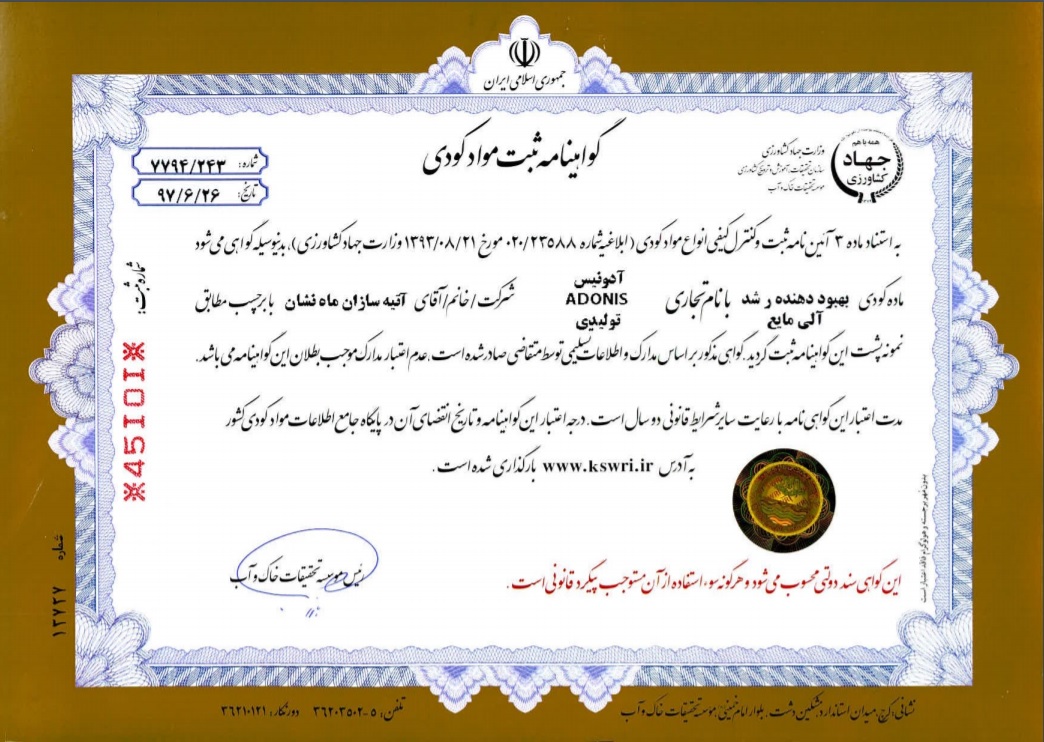 جمهوری اسلامی ایران
همه با هم
جهاد
کشاورزی
وزارت جهاد کشاورزی
سازمان تحقیقات، آموزش و ترویج کشاورزی
موسسه تحقیقات خاک و آب
گواهینامه ثبت مواد کودی
شماره: ۷۷۹۴/۲۴۳
تاریخ: ۹۷/۶/۲۶
به استناد ماده ۳ آئین نامه ثبت و کنترل کیفی انواع مواد کودی (ابلاغیه شماره ۰۲۰/۲۳۵۸۸ مورخ ۱۳۹۳/۰۸/۲۱ وزارت جهاد کشاورزی)، بدینوسیله گواهی می شود
ماده کودی بهبود دهنده رشد آلی مایع با نام تجاری آدونیس ADONIS تولیدی شرکت/خانم/آقای آتیه سازان ماه نشان با برچسب مطابق
نمونه پشت این گواهینامه ثبت گردید. گواهی مذکور بر اساس مدارک و اطلاعات تسلیمی توسط متقاضی صادر شده است. عدم اعتبار مدارک موجب بطلان این گواهینامه می باشد.
مدت اعتبار این گواهی نامه با رعایت سایر شرایط قانونی دو سال است. درجه اعتبار این گواهینامه و تاریخ انقضای آن در پایگاه جامع اطلاعات مواد کودی کشور
به آدرس www.kswri.ir بارگذاری شده است.
رئیس موسسه تحقیقات خاک و آب
این گواهی سند دولتی محسوب می شود و هرگونه سوء استفاده از آن مستوجب پیگرد قانونی است.
بدون مهر برجسته و هولوگرام فاقد اعتبار است
شماره ثبت:
※45101※
شماره ۱۳۷۲۷
نشانی: کرج، میدان استاندارد، مشکین دشت، بلوار امام خمینی، موسسه تحقیقات خاک و آب
تلفن: ۵-۳۶۲۰۳۵۰۲ دورنگار: ۳۶۲۱۰۱۲۱